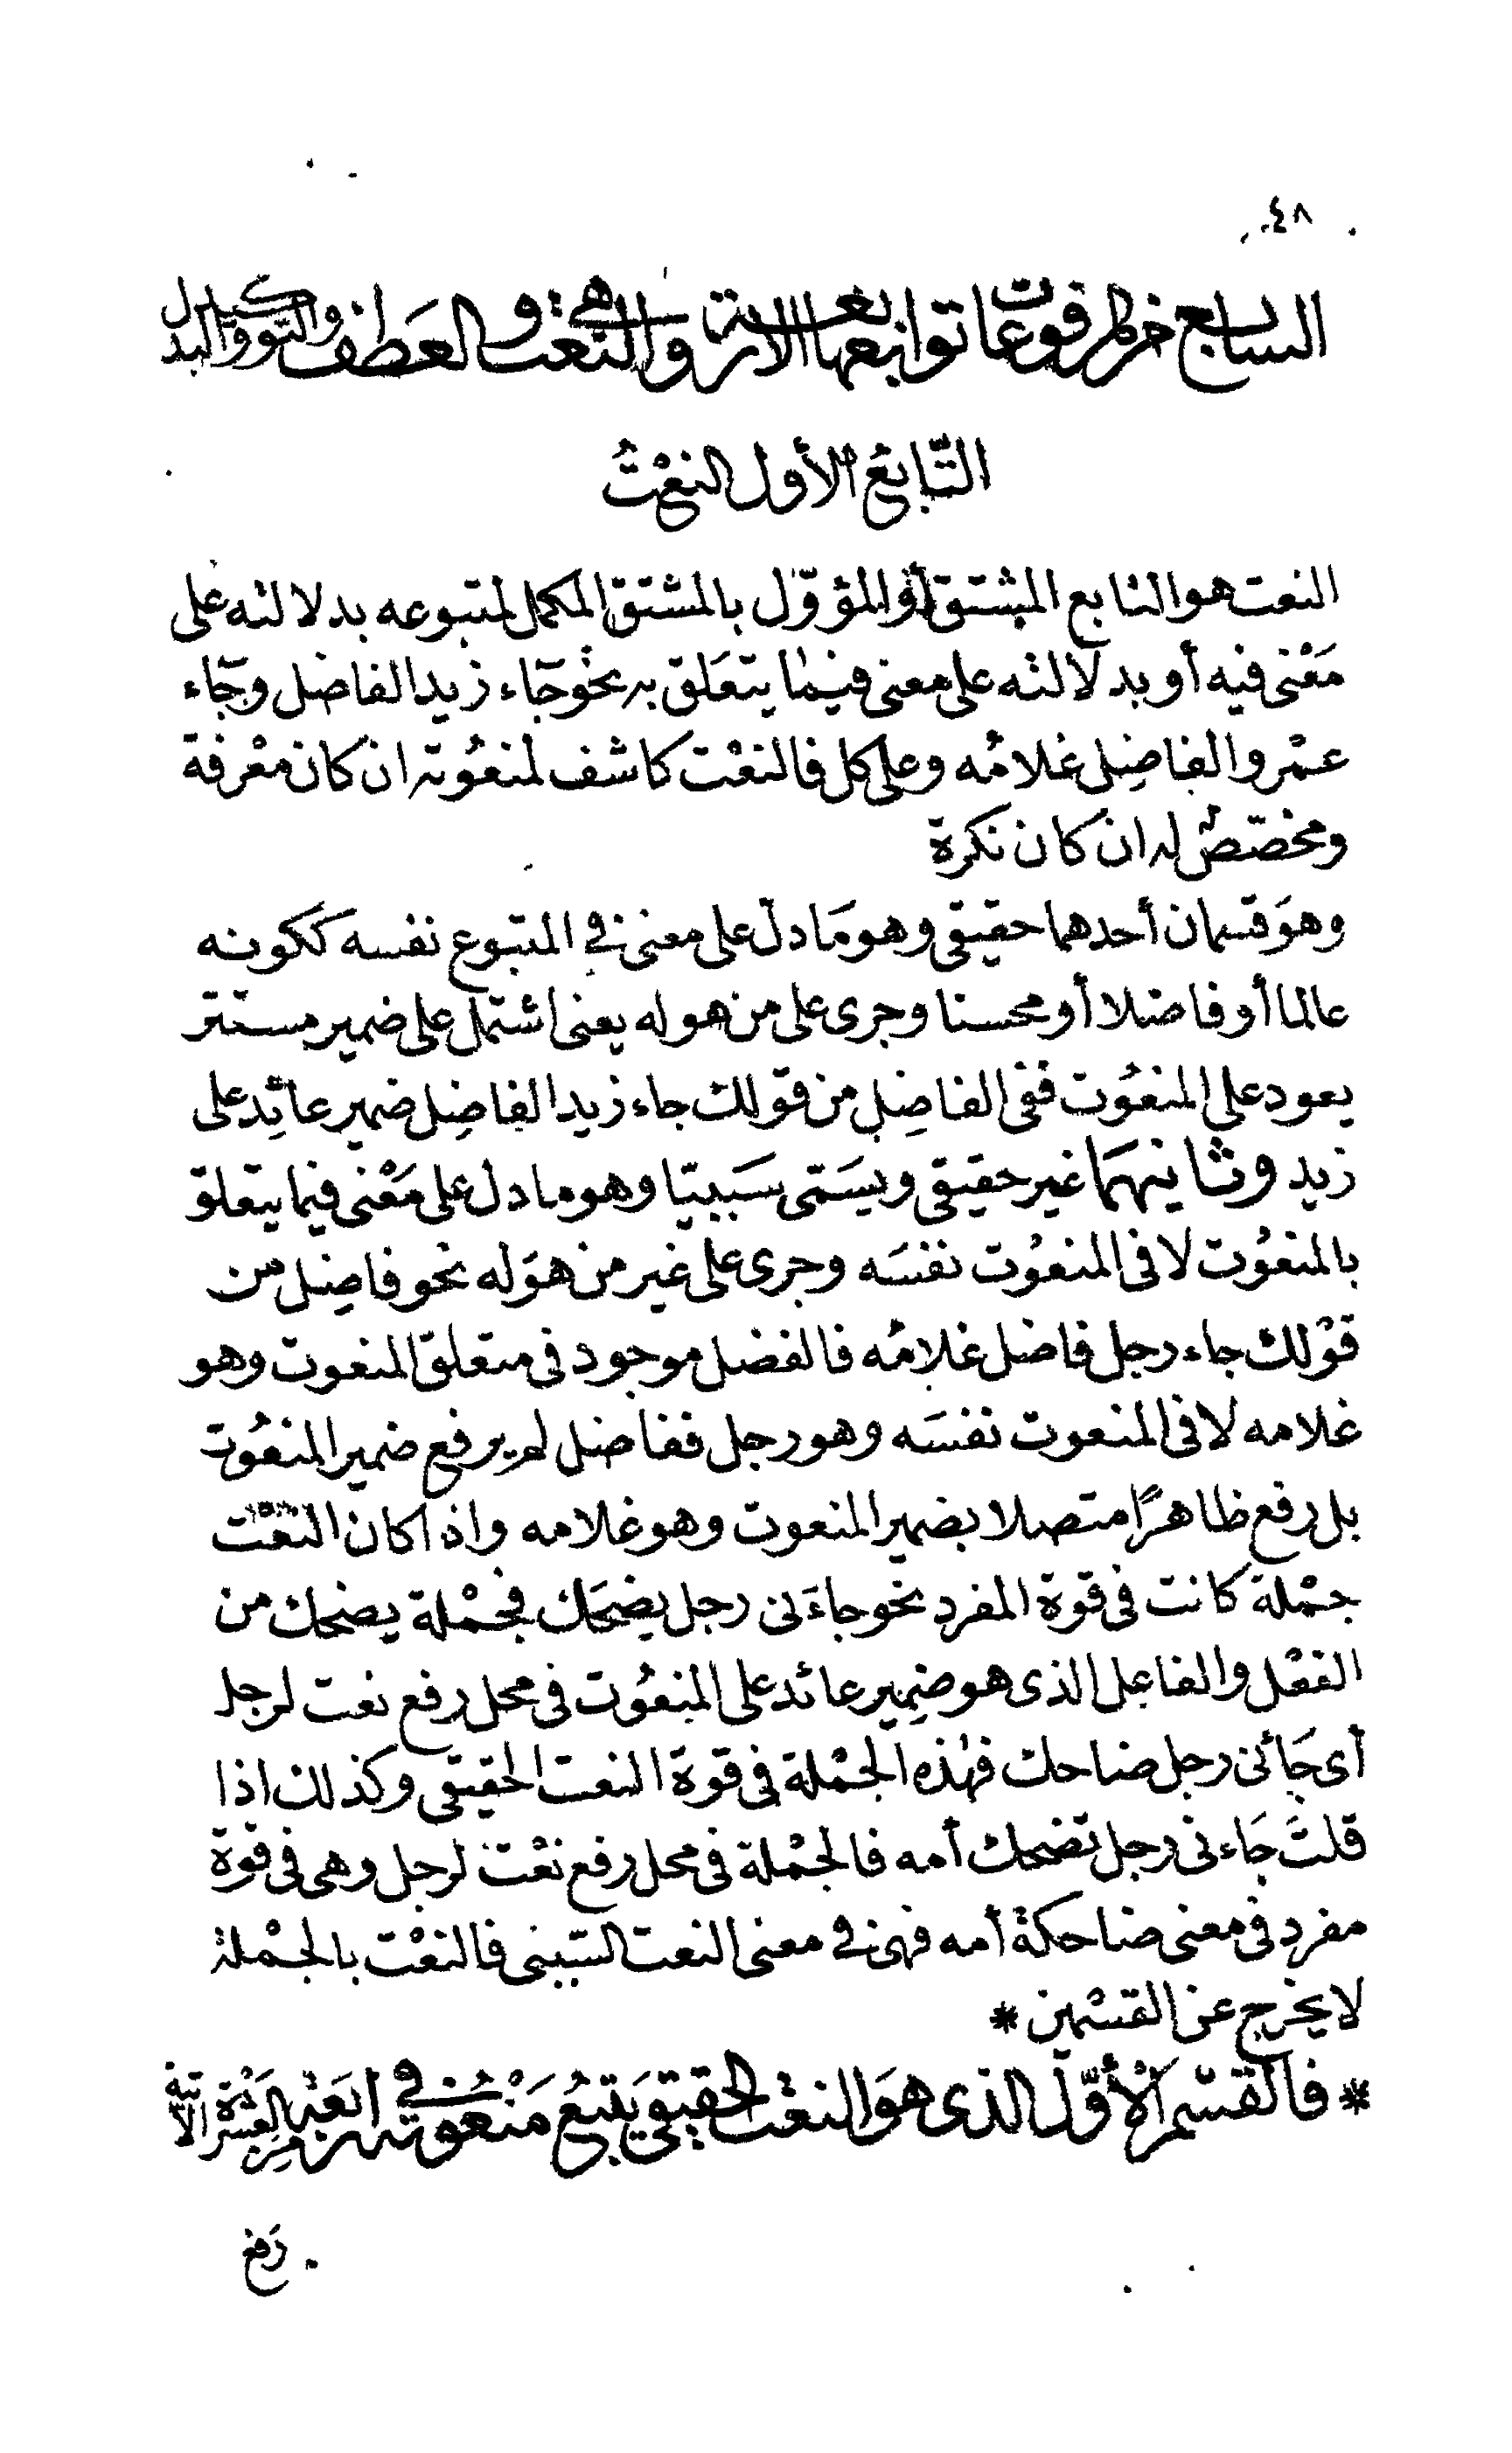 ٤٨
السابع من المرفوعات توابعها الاربعة وهى النعت والعطف والتوكيد والبدل
التّابع الأول النعْتُ
النعت هو التابع المشتق أو المؤوّل بالمشتق المكمل لمتبوعه بدلالته على
مَعْنى فيه أو بدلالته على معنى فيما يتعَلق به نحْو جَاء زيد الفاضل وجَاء
عمْرو الفاضِل غلامُه وعلى كل فالنعْت كاشف لمنعُوته ان كان معْرفة
ومخصّصٌ له ان كان نكرة
وهوَ قسمان أحدهما حقيقى وهو مَا دلّ على معنى فى المتبوع نفسه ككونه
عالما أو فاضلا أو محسنا وجرى على من هو له يعنى اشتمل على ضمير مستتر
يعود على المنعُوت ففى الفاضِل من قولك جاء زيد الفاضِل ضمير عائِد على
زيد وثانيهمَا غير حقيقى ويسَمّى سَببيّا وهو ما دل على مَعْنى فيما يتعلق
بالمنعُوت لا فى المنعُوت نفسَه وجرى على غير من هوَ له نحو فاضِل من
قوْلك جاء رجل فاضل غلامُه فالفضل موجود فى متعلق المنعوت وهو
غلامه لا فى المنعوت نفسَه وهو رجل ففاضل لم يرفع ضمير المنعُوت
بل رفع ظاهرًا متصلا بضمير المنعوت وهو غلامه واذا كان النعْت
جمْلة كانت فى قوة المفرد نحو جاءَنى رجل يضحَك فجمْلة يضحك من
الفعْل والفاعِل الذى هو ضمِير عائد على المنعُوت فى محل رفع نعت لرجل
أى جَائنى رجل ضاحك فهٰذه الجمْلة فى قوة النعت الحقيقى وكذلك اذا
قلتَ جَاءنى رجل تضحك أمه فالجمْلة فى محل رفع نعْت لرجل وهى فى قوة
مفرد فى معنى ضاحكة أمه فهى فى معنى النعت السّببى فالنعْت بالجمْلة
لا يخرج عن القسْمين *
* فالقسْم الأوّل الذى هوَ النعْت الحقيقى يَتبعُ مَنْعُوته فى أربَعَة مِن العشَرَة الآتية
رَفع